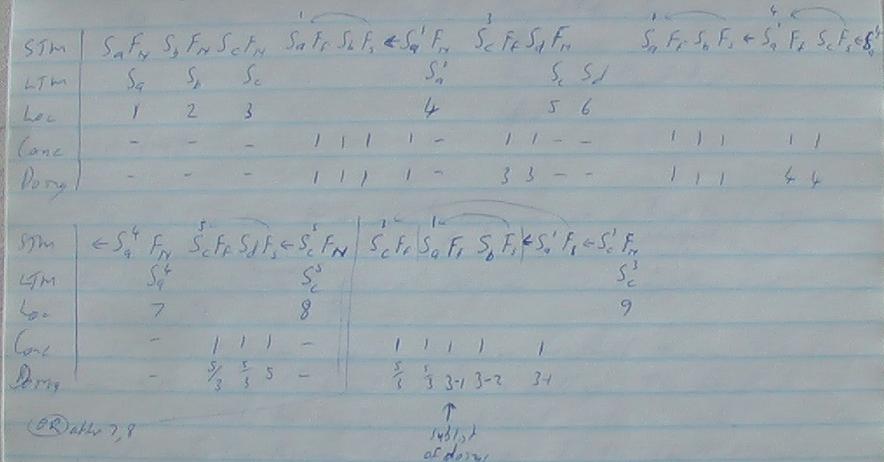 STM Sa FN Sb FN Sc FN Sa Ff Sb Fs ← Sa' FN Sc Ff Sd FN Sa Ff Sb Fs ← Sa' Ff Sc Fs ←
LTM Sa Sb Sc Sa' Sc Sd
Loc 1 2 3 4 5 6
Conc - - - 1 1 1 1 - 1 1 - - 1 1 1 1 1
Doing - - - 1 1 1 1 - 3 3 - - 1 1 1 4 4
STM ← Sa4 FN Sc Ff Sd Fs ← Sc5 FN Sc3 Ff Sa Ff Sb Fs ← Sa' Fs ← Sc' FN
LTM Sa4 Sc5 Sc3
Loc 7 8 9
Conc - 1 1 1 - 1 1 1 1 1
Doing - 5/3 5/3 5 - 5/3 5/3 3-1 3-2
OR after 7,8
of doing